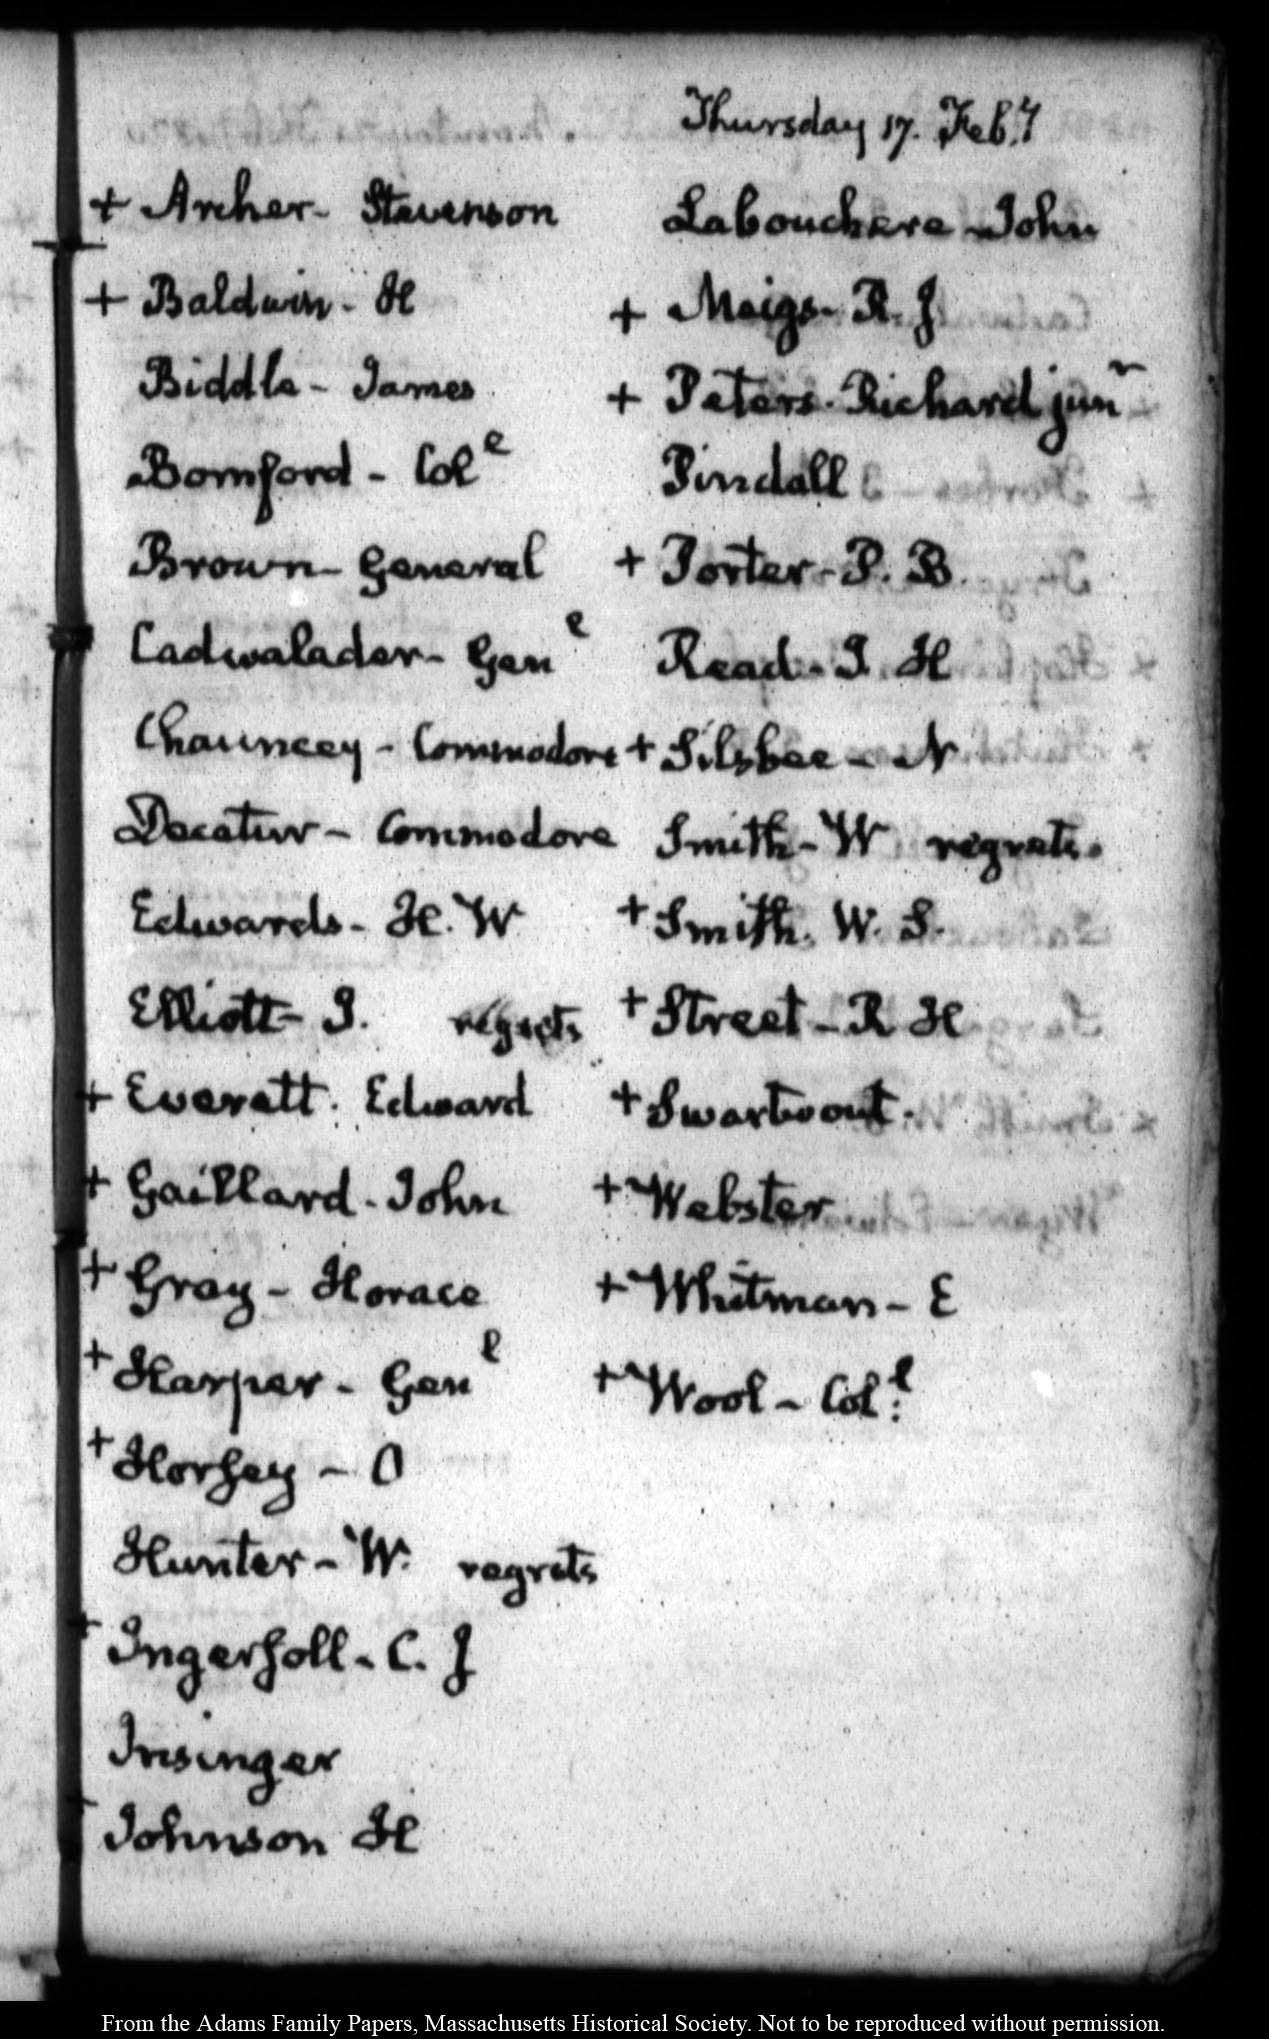 Thursday 17. Feb.y
+ Archer - Stevenson
+ Baldwin - H
Biddle - James
Bomford - Col l
Brown - General
Cadwalader - Gen l
Chauncey - Commodore
Decatur - Commodore
Edwards - H. W
Elliott - J. regrets
+ Everett. Edward
+ Gaillard - John
+ Gray - Horace
+ Harper - Gen l
+ Horsey - O
Hunter - W. regrets
+ Ingersoll - C. J
Insinger
+ Johnson H
Labouchere - John
+ Meigs - R. J
+ Peters - Richard jun r
Pindall
+ Porter - P. B.
Read - J. H
+ Silsbee - N
Smith - W regrets.
+ Smith. W. S.
+ Street - R H
+ Swartwout.
+ Webster
+ Whitman - E
+ Wool - Col. l
From the Adams Family Papers, Massachusetts Historical Society. Not to be reproduced without permission.